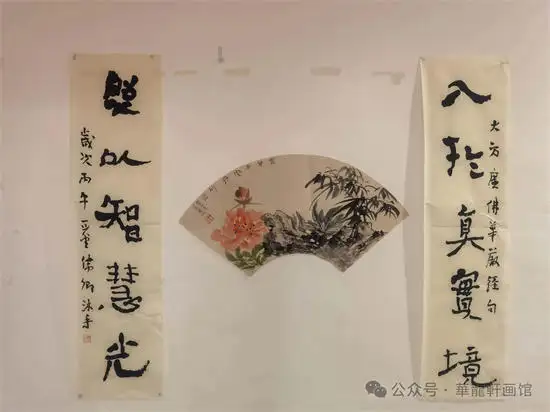 入於真實境
大方廣佛華嚴經句
照以智慧光
歲次丙午
沐手
公众号·華龍軒画馆